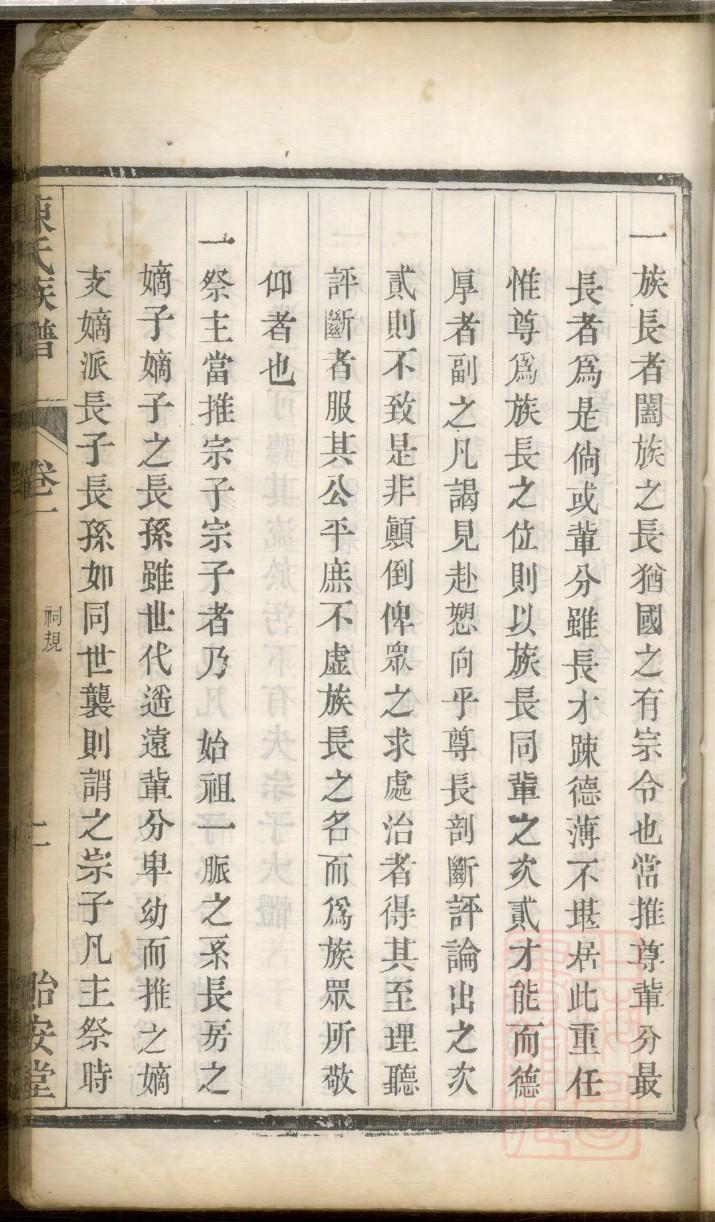 一族長者闔族之長猶國之有宗令也當推尊輩分最
長者爲是倘或輩分雖長才踈德薄不堪居此重任
惟尊爲族長之位則以族長同輩之次貳才能而德
厚者副之凡謁見赴愬向乎尊長剖斷評論出之次
貳則不致是非顚倒俾眾之求處治者得其至理聽
評斷者服其公平庶不虛族長之名而爲族眾所敬
仰者也
一祭主當推宗子宗子者乃 始祖一脈之系長房之
嫡子嫡子之長孫雖世代遥遠輩分卑幼而推之嫡
支嫡派長子長孫如同世襲則謂之宗子凡主祭時
陳氏族譜 卷一 祠規 二 貽安堂